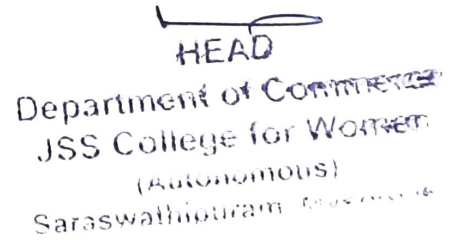 HEAD
Department of Commerce
JSS College for Women
(Autonomous)
Saraswathipuram